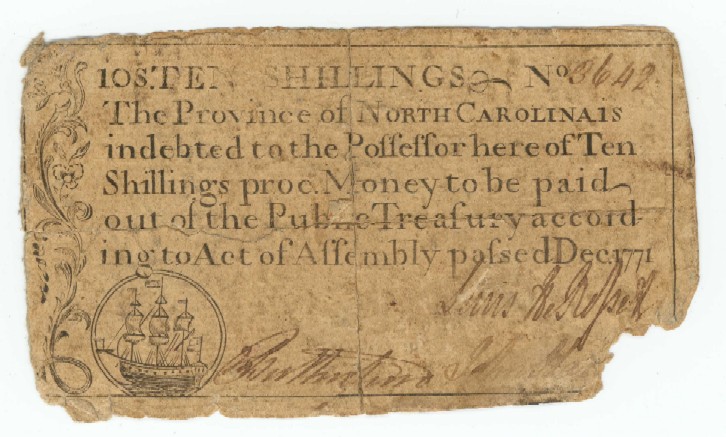 10S. TEN SHILLINGS No 3642
The Province of NORTH CAROLINA is
indebted to the Poſſeſſor here of Ten
Shillings proc. Money to be paid
out of the Public Treaſury accord-
ing to Act of Aſſembly paſsed Dec. 1771
Lewis De Roſsett